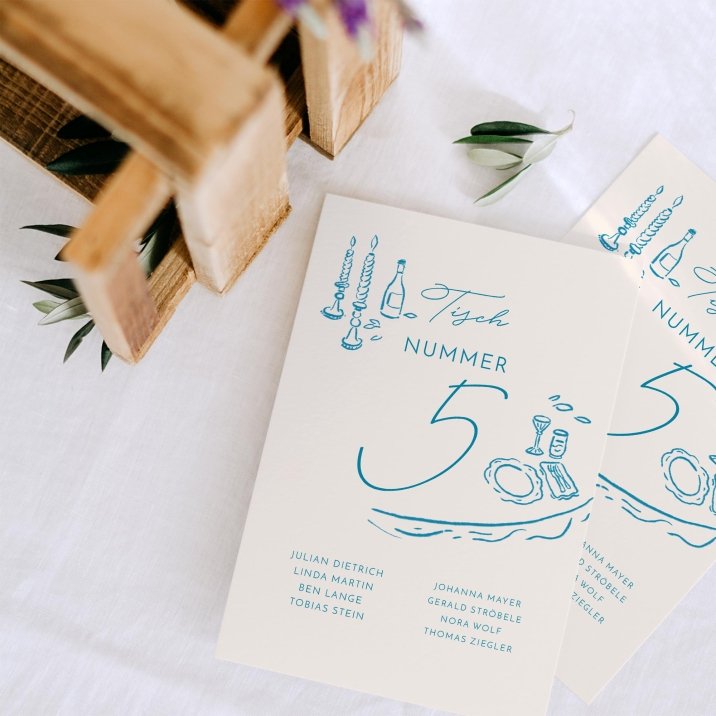 Tisch
NUMMER
5
JULIAN DIETRICH
LINDA MARTIN
BEN LANGE
TOBIAS STEIN
JOHANNA MAYER
GERALD STRÖBELE
NORA WOLF
THOMAS ZIEGLER
5
MAYER
STRÖBELE
WOLF
ZIEGLER